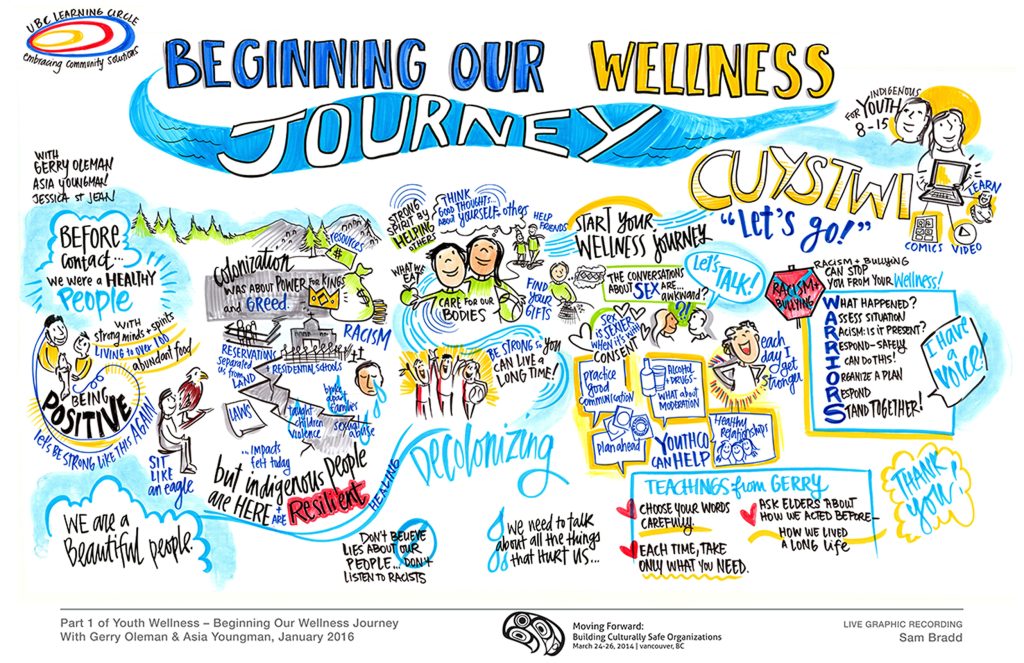 UBC LEARNING CIRCLE
embracing community solutions
BEGINNING OUR WELLNESS
JOURNEY
WITH
GERRY OLEMAN
ASIA YOUNGMAN
JESSICA ST JEAN
FOR INDIGENOUS
YOUTH
8-15
CUYSTWI
"LET'S GO!"
LEARN
COMICS
VIDEO
BEFORE
CONTACT...
we were a HEALTHY
PEOPLE
WITH
strong minds + spirits
LIVING to over 100
abundant food
BEING
POSITIVE
LET'S BE STRONG LIKE THIS AGAIN
SIT
LIKE
AN eagle
WE ARE A
Beautiful people.
resources
Colonization
WAS ABOUT POWER FOR KINGS
and GREED.
RACISM
RESERVATIONS
separated
us from
LAND
+ RESIDENTIAL SCHOOLS
broke
apart
families
LAWS
taught
children
violence
sexual
abuse
... impacts
felt today
but indigenous people
are HERE + ARE Resilient
HEALING
STRONG
SPIRIT BY
HELPING
OTHERS
THINK
GOOD THOUGHTS...
ABOUT YOURSELF, others
HELP
FRIENDS
WHAT WE
EAT
CARE FOR OUR
BODIES
FIND
YOUR
GIFTS
BE STRONG SO YOU
CAN LIVE A
LONG TIME!
Decolonizing
DON'T BELIEVE
LIES ABOUT OUR
PEOPLE... DON'T
LISTEN TO RACISTS
we need to talk
about all the things
that HURT US...
START YOUR
WELLNESS JOURNEY
THE CONVERSATIONS
ABOUT SEX ARE...
awkward?
Let's
TALK!
SEX
IS SEXIER
WHEN IT'S WITH
CONSENT
each
day I
get
stronger
Practice
good
communication
Alcohol
+ DRUGS-
WHAT ABOUT
MODERATION
plan ahead
YOUTHCO
CAN HELP
Healthy
Relationships
RACISM +
BULLYING
RACISM + BULLYING
CAN STOP
YOU FROM YOUR Wellness!
WHAT HAPPENED?
ASSESS SITUATION
RACISM: IS IT PRESENT?
RESPOND - SAFELY
I CAN DO THIS!
ORGANIZE A PLAN
RESPOND
STAND TOGETHER!
I HAVE A
VOICE!
TEACHINGS from GERRY
CHOOSE YOUR WORDS
CAREFULLY.
EACH TIME, TAKE
ONLY WHAT YOU NEED.
ASK ELDERS ABOUT
HOW WE ACTED BEFORE-
HOW WE LIVED
A LONG Life
THANK
YOU!
Part 1 of Youth Wellness – Beginning Our Wellness Journey
With Gerry Oleman & Asia Youngman, January 2016
Moving Forward:
Building Culturally Safe Organizations
March 24-26, 2014 | vancouver, BC
LIVE GRAPHIC RECORDING
Sam Bradd